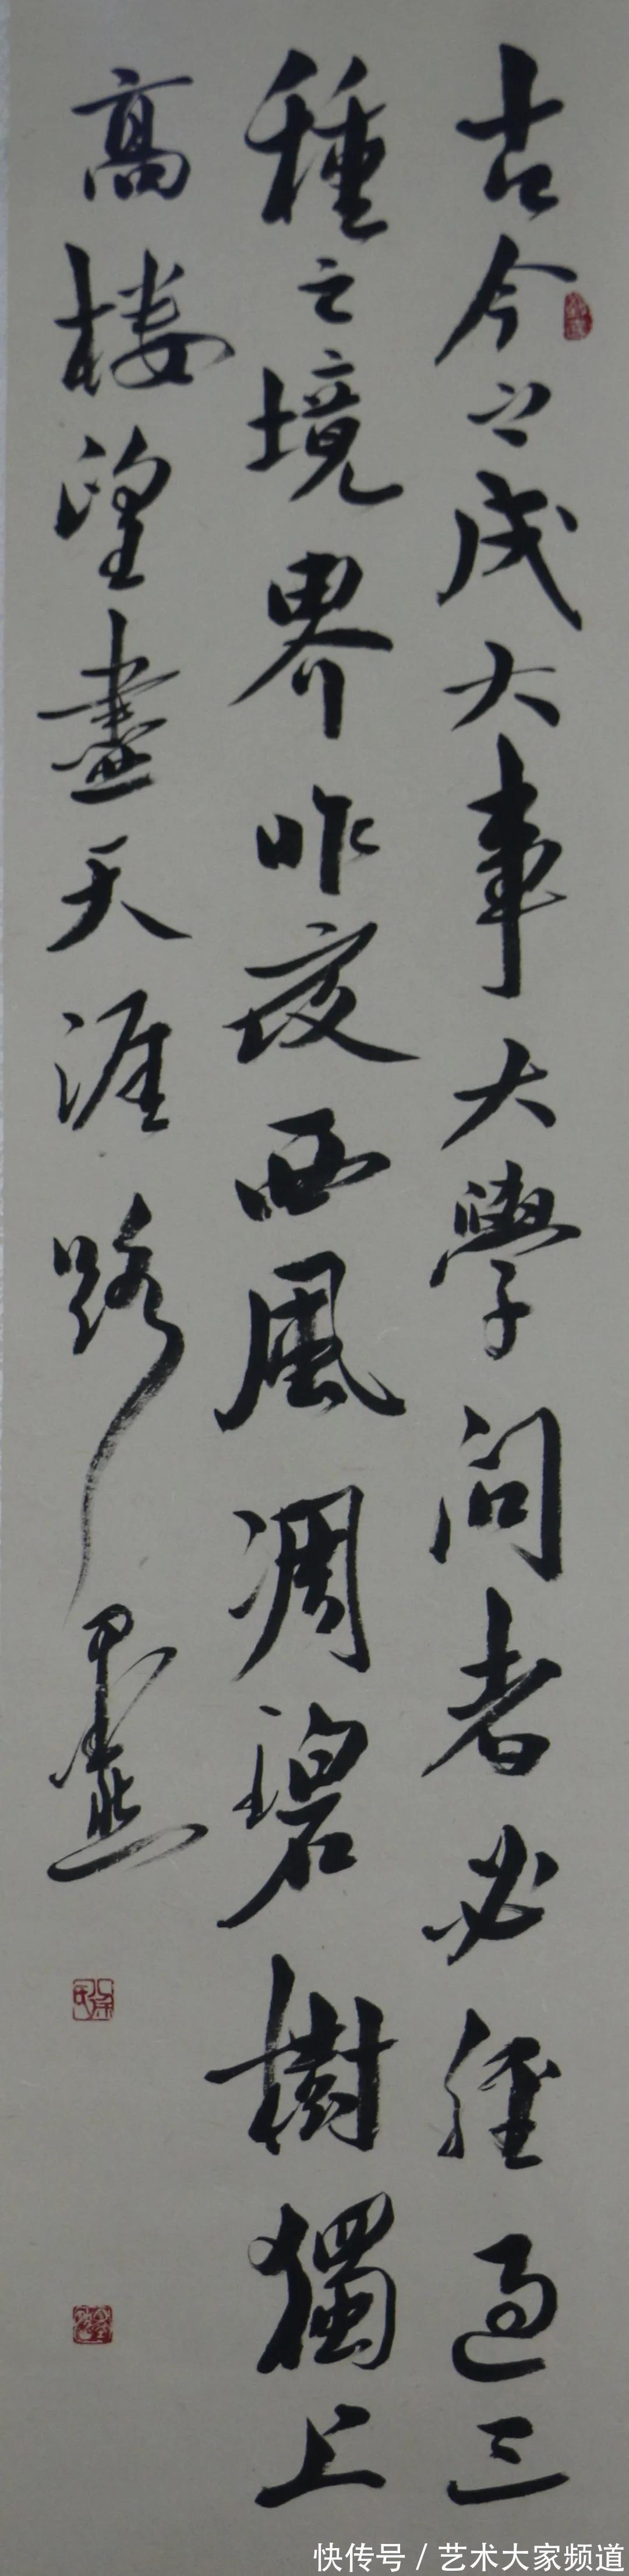 古今之成大事大學問者必經過三
種之境界昨夜西風凋碧樹獨上
高樓望盡天涯路
快传号/艺术大家频道